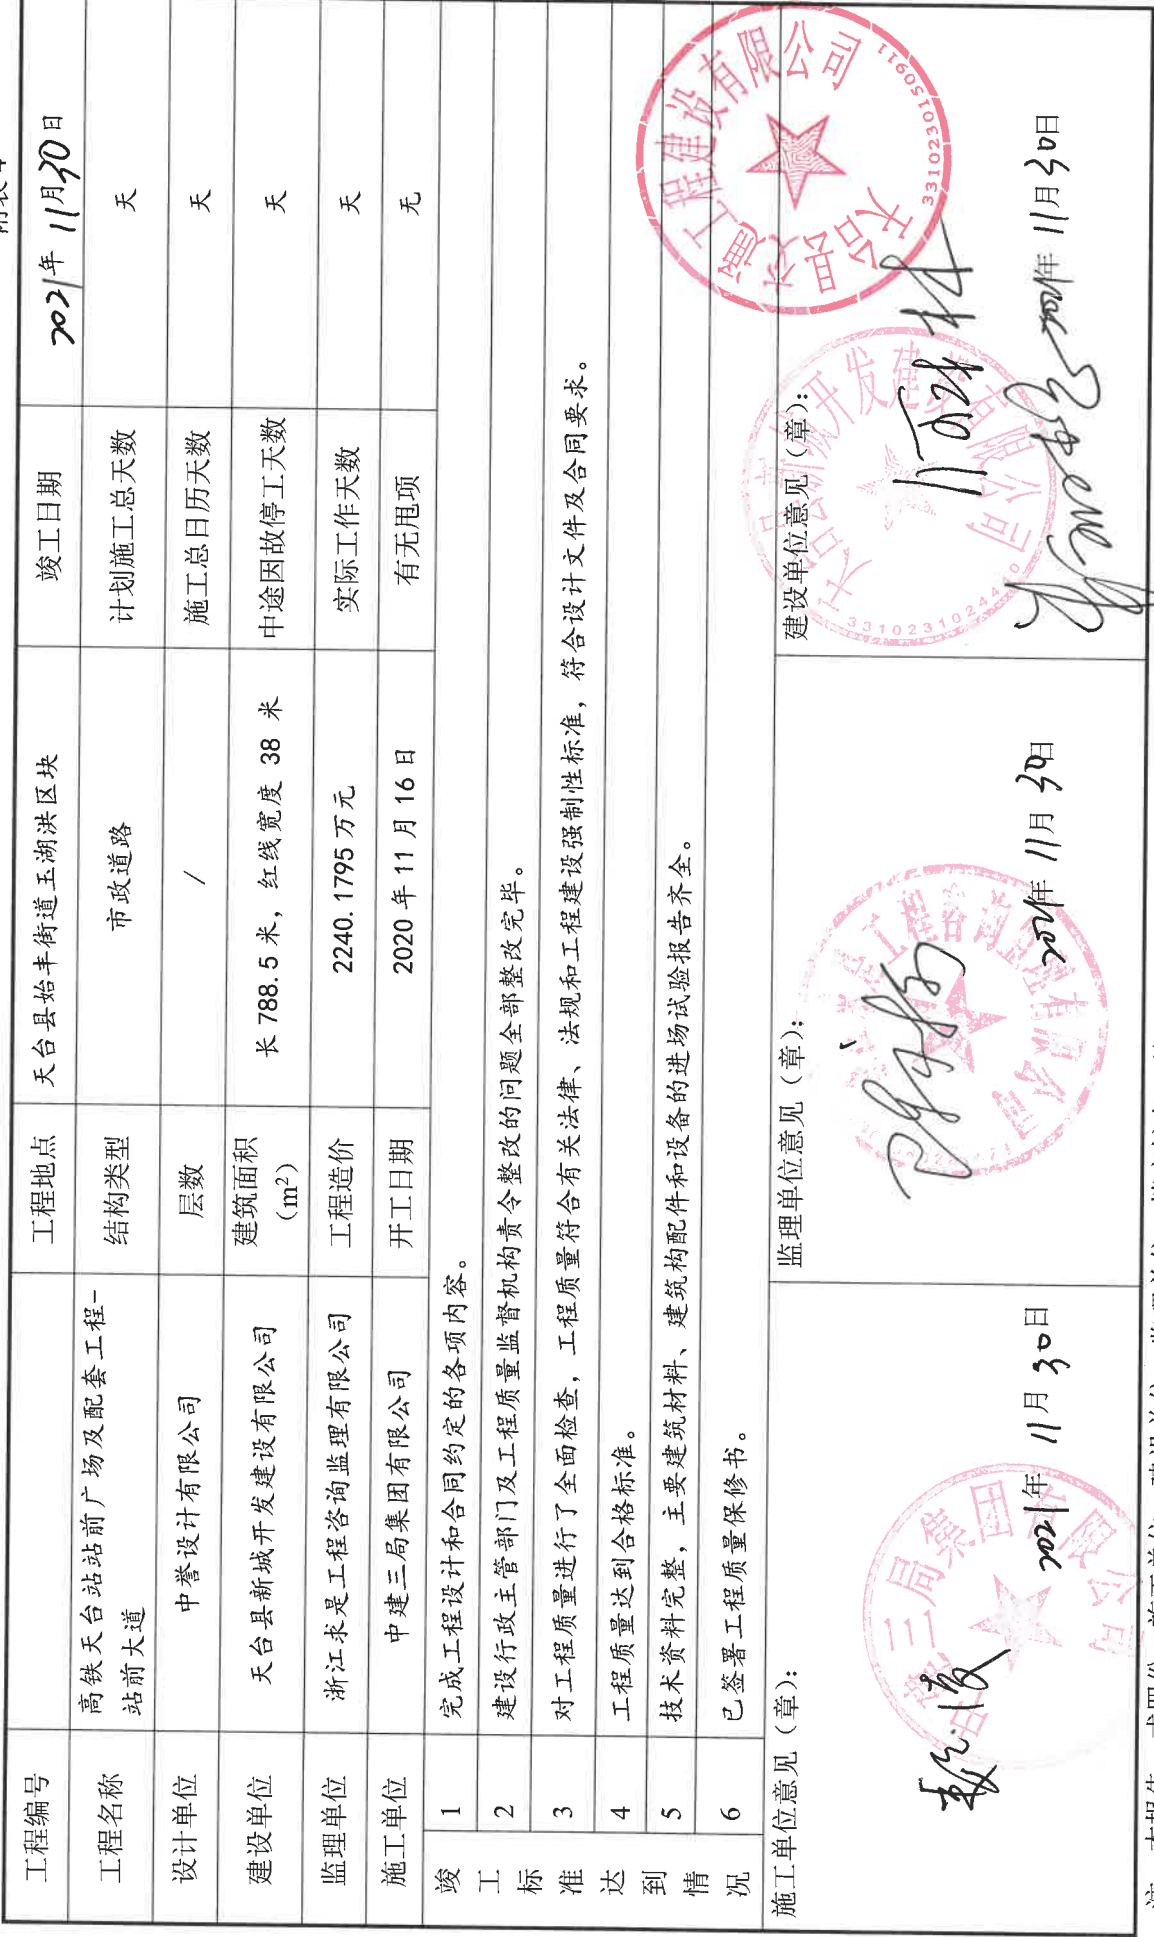 附表4
工程编号 工程地点 天台县始丰街道玉湖洪区块 竣工日期 2021年11月30日
工程名称 高铁天台站站前广场及配套工程-
站前大道 结构类型 市政道路 计划施工总天数 天
设计单位 中誉设计有限公司 层数 / 施工总日历天数 天
建设单位 天台县新城开发建设有限公司 建筑面积
（m²） 长 788.5 米，红线宽度 38 米 中途因故停工天数 天
监理单位 浙江求是工程咨询监理有限公司 工程造价 2240.1795 万元 实际工作天数 天
施工单位 中建三局集团有限公司 开工日期 2020 年 11 月 16 日 有无甩项 无
竣工标准达到情况
1 完成工程设计和合同约定的各项内容。
2 建设行政主管部门及工程质量监督机构责令整改的问题全部整改完毕。
3 对工程质量进行了全面检查，工程质量符合有关法律、法规和工程建设强制性标准，符合设计文件及合同要求。
4 工程质量达到合格标准。
5 技术资料完整，主要建筑材料、建筑构配件和设备的进场试验报告齐全。
6 已签署工程质量保修书。
施工单位意见（章）：
中建三局集团有限公司
2021年 11月 30日
监理单位意见（章）：
2021年 11月 30日
建设单位意见（章）：
天台县新城开发建设有限公司
3310231024440
工程建设有限公司
天台县
3310230150911
2021年 11月 30日